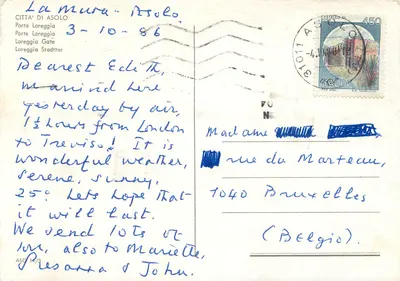 CITTA' DI ASOLO
Porta Loreggia
Porte Loreggia
Loreggia Gate
Loreggia Stadttor
La Mura - Asolo
3-10-86
Dearest Edith,
we arrived here
yesterday by air,
1½ hours from London
to Treviso! It is
wonderful weather,
serene, sunny,
25° Lets hope that
it will last.
We send lots of
love, also to Mariette,
& John.
450
31011 ASOLO
Madame
rue du Marteau,
1040 Bruxelles
(Belgio).